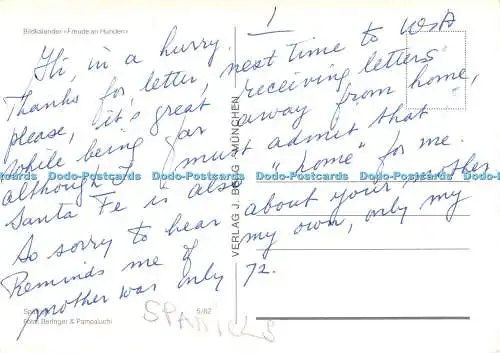 Bildkalender »Freude an Hunden«
1
Hi, in a hurry.
Thanks for letter, next time to USA
please, it's great receiving letters
while being far away from home,
although I must admit that
Santa Fe is also "home" for me.
So sorry to hear about your mother
Reminds me of my own, only my
mother was only 72.
VERLAG J. BERG · MÜNCHEN
5/82
Foto: Beringer & Pampaluchi
SPANIELS
Dodo-Postcards Dodo-Postcards Dodo-Postcards Dodo-Postcards Dodo-Postcards